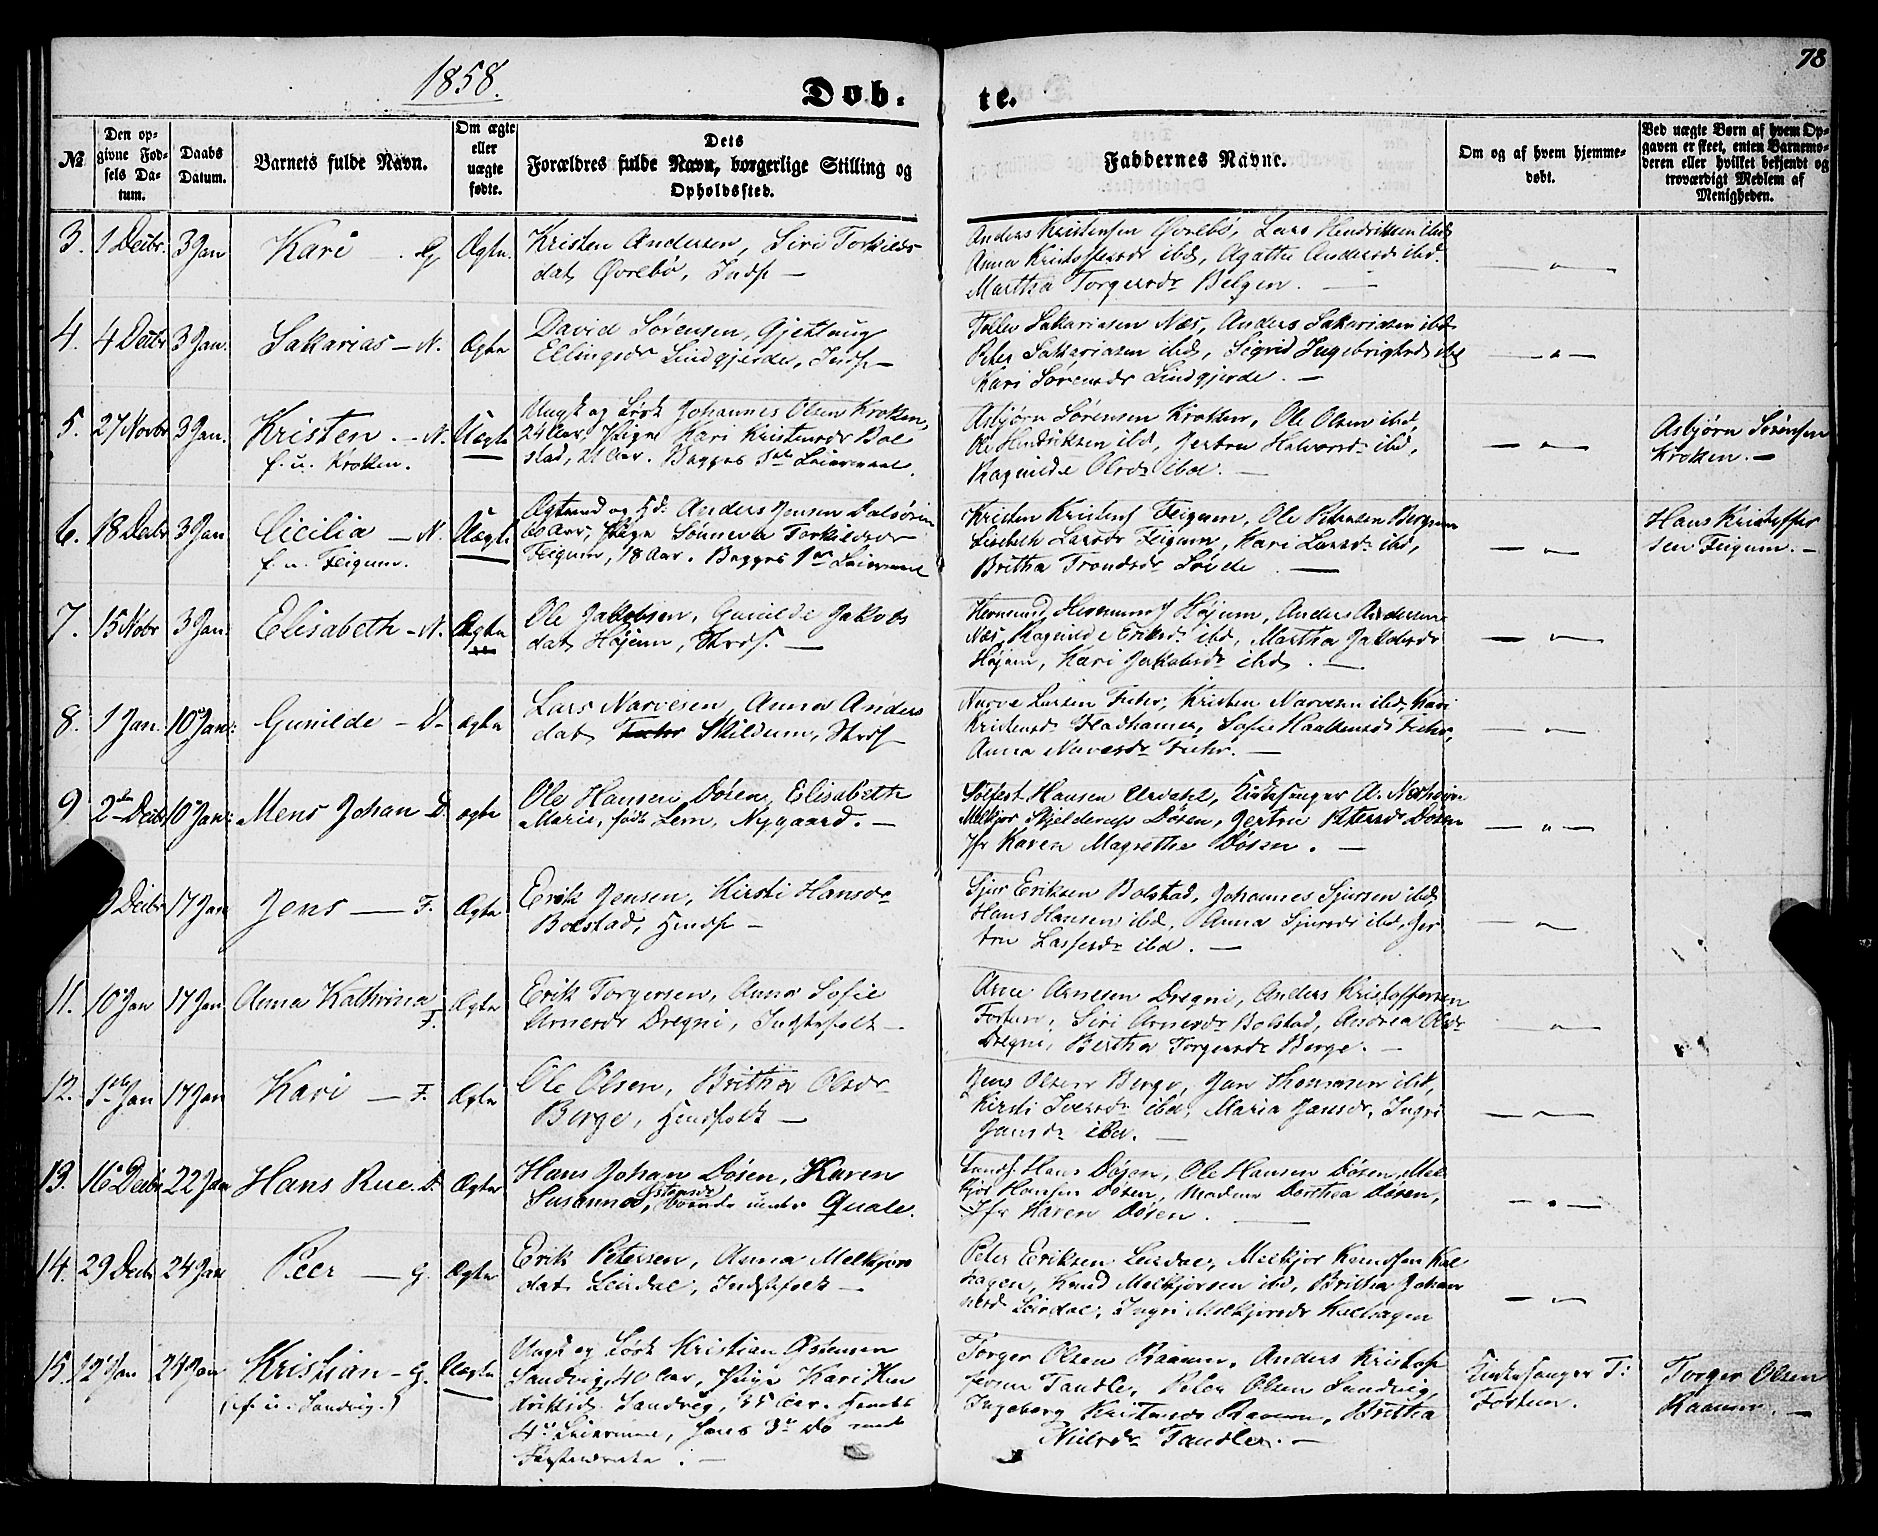 1858.
78
Døb-
te.
№
Den op-
givne Fød-
sels Da-
tum.
Daabs
Datum.
Barnets fulde Navn.
Om ægte
eller
uægte
fødte.
Dets
Forældres fulde Navn, borgerlige Stilling og
Opholdssted.
Faddernes Navne.
Om og af hvem hjemme-
døbt.
Ved uægte Børn af hvem Op-
gaven er skeet, enten Barnemo-
deren eller hvilket bekjendt og
troværdigt Medlem af
Menigheden.
3. 1 Decbr. 3 Jan Kari — . G Ægte.
Kristen Andersen, Siri Torkilds
dat Øvrebø, Indf —
Anders Kristensen Øvrebø, Lars Hendriksen ibd
Anna Kristoffersdr ibd, Agatha Andersd ibd.
Martha Torgersdr Bolgen. —
4. 4 Decbr 3 Jan. Sakarias — N. Ægte
David Sørensen, Gjertrug
Ellingsdr Lindgjerde, Indf —
Tollev Sakariasen Næs, Anders Sakariasen ibd
Peter Sakariasen ibd, Sigrid Ingebrigtsd ibd
Kari Sørensdr Lindgjerde. —
5. 27 Novbr 3 Jan. Kristen . — N. Uægte
f. u. Krokken.
Ungk og Løsk Johannes Olsen Krokken,
24 Aar, Pige Kari Kristensdr Bol
stad, 21 Aar. Begges 1ste Leiermaal.
Asbjørn Sørensen Krokken, Ole Olsen ibd,
Ole Hendriksen ibd, Gertru Halvorsd ibd,
Ragnilde Olsdr ibd. —
Asbjørn Sørensen
Krokken. —
6. 18 Decbr 3 Jan. Cicilia — N. Uægte
f. u. Feigum.
Ægtmd og Hd. Anders Jensen Dalsøren
60 Aar, Pige Sønneva Torkildsdr
Feigum, 18 Aar. Begges 1ste Leiermaal
Kristen Kristens Feigum, Ole Petersen Bergum
Lisebeth Larsdr Feigum, Kari Larsdr ibd,
Britha Trondsdr Søide. —
Hans Kristoffer
sen Feigum. —
7. 15 Nobr 3 Jan. Elisabeth — N. Ægte
Ole Jakobsen, Gunilde Jakobs
dat Høyum, Strdf. —
Høyum, Anders Andersen
Næs, Ragnilde Eriksdr ibd, Martha Jakobsdr
Høyum, Kari Jakobsdr ibd. —
8. 1 Jan. 10 Jan: Gunilde — D. ægte
Lars Narvesen, Anna Anders
dat Fuhr Skildum, Strdf
Narve Larsen Fuhr, Kristen Narvesen ibd, Kari
Kristensd Fladhamer, Sofie Fuhr,
Anna Narvesdr Fuhr. —
9 2den Decbr 10 Jan: Mens Johan D. ægte
Ole Hansen Døsen, Elisabeth
Marie, født Lem, Nygaard. —
Solfest Hansen Urdahl, Kirkesanger A.
Melkjør Skjelderup Døsen, Gertru Petersdr Døsen
Jfr Karen Magrethe Døsen. —
9 Decbr 17 Jan Jens — F. Ægte
Erik Jensen, Kirsti Hansdr
Bolstad, Hmdf —
Sjur Eriksen Bolstad, Johannes Sjursen ibd,
Hans Hansen ibd, Anna Sjursdr ibd, Ger
tru Lassesdr ibd. —
11. 10 Jan 17 Jan Anna Kathrina F. Ægte
Erik Torgersen, Anna Sofie
Arnesdr Dregni, Indstefolk —
Arne Arnesen Dregni, Anders Kristoffersen
Fortun, Siri Arnesdr Bolstad, Andrea Olsdr
Dregni, Bertha Torgersdr Berge. —
12. 1ste Jan 17 Jan Kari — F. Ægte
Ole Olsen, Britha Olsdr
Berge, Hmdfolk —
Jens Olsen Berge, Jan Thomasen ibd,
Kirsti Iversdr ibd, Maria Jansdr, Ingri
Jansdr ibd. —
13. 16 Decbr 22 Jan Hans Rue. D. Ægte
Hans Johan Døsen, Karen
Susanna, Estensdr Bønde under Quale.
Landh. Hans Døsen, Ole Hansen Døsen, Mel
kjør Hansen Døsen, Madme Dorthea Døsen,
Jfr Karen Døsen. —
14. 29 Decbr 24 Jan Peer — G. Ægte
Erik Petersen, Anna Melkjørs
dat Leirdal, Indstefolk —
Peter Eriksen Leirdal, Melkjør Knudsen Kal
hagen, Knud Melkjørsen ibd, Britha Johan
nesd Leirdal, Ingri Melkjørsdr Kalhagen
15. 12 Jan 24 Jan Kristian — G. Uægte
(f. u. Sandvig.)
Ungk og Løsk Kristian Østensen
Sandvig, 40 Aar, Pige Kari Hen
driksd. Sandvig, 35 Aar. Hendes
4de Leiermaal, Hans 3die Do med
Torger Olsen Raaum, Anders Kristof
fersen Tandle, Peter Olsen Sandvig,
Ingeborg Kristensdr Raaum, Britha
Nielsdr Tandle. —
Kirkesanger T:
Fortun.
Torger Olsen
Raaum. —